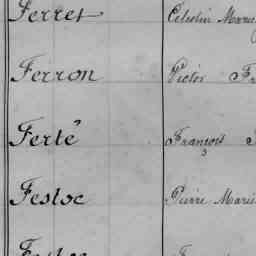 Ferret Célestin Marie
Ferron Victor Fr
Ferté François
Festoc Pierre Marie